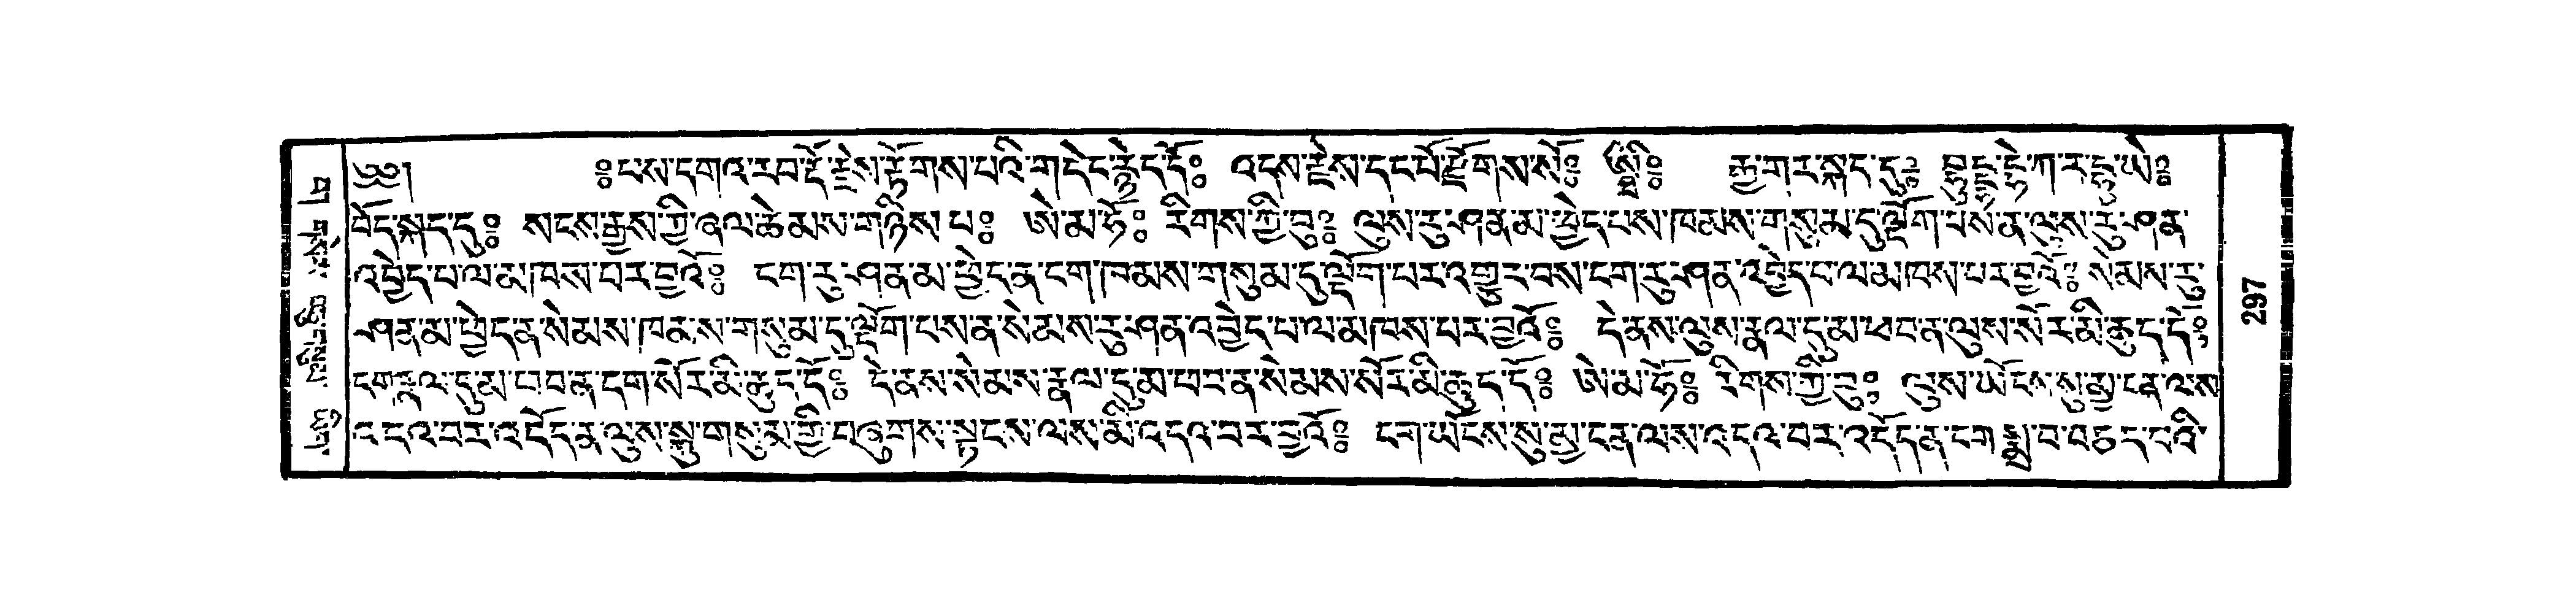 ༄༅། ༔པས་དགའ་རབ་རྡོ་རྗེས་རྟོགས་པའི་གདེང་རྙེད་དོ༔ འདས་རྗེས་དང་པོ་རྫོགས་སོ༔ ཨྠྀི༔ རྒྱ་གར་སྐད་དུ༔ བུདྡྷ་དྷེ་ཀ་ར་དྷ་ཡེ༔
བོད་སྐད་དུ༔ སངས་རྒྱས་ཀྱི་ཞལ་ཆེམས་གཉིས་པ༔ ཨེ་མ་ཧོ༔ རིགས་ཀྱི་བུ༔ ལུས་རུ་ཤན་མ་ཕྱེད་པས་ཁམས་གསུམ་དུ་ལྡོག་པས་ན་ལུས་རུ་ཤན་
འབྱེད་པ་ལ་མཁས་པར་བྱའོ༔ ངག་རུ་ཤན་མ་ཕྱེད་ན་ངག་ཁམས་གསུམ་དུ་ལྡོག་པར་འགྱུར་བས་ངག་རུ་ཤན་འབྱེད་པ་ལ་མཁས་པར་བྱའོ༔ སེམས་རུ་
ཤན་མ་ཕྱེད་ན་སེམས་ཁམས་གསུམ་དུ་ལྡོག་པས་ན་སེམས་རུ་ཤན་འབྱེད་པ་ལ་མཁས་པར་བྱའོ༔ དེ་ནས་ལུས་རྣལ་དུ་མ་ཕབ་ན་ལུས་སོར་མི་ཆུད་དེ༔
ངག་རྣལ་དུ་མ་ཕབ་ན་ངག་སོར་མི་ཆུད་དོ༔ དེ་ནས་སེམས་རྣལ་དུ་མ་ཕབ་ན་སེམས་སོར་མི་ཆུད་དོ༔ ཨེ་མ་ཧོ༔ རིགས་ཀྱི་བུ༔ ལུས་ཡོངས་སུ་མྱ་ངན་ལས་
འདའ་བར་འདོད་ན་ལུས་སྐུ་གསུམ་གྱི་བཞུགས་སྟངས་ལས་མི་འདའ་བར་བྱའོ༔ ངག་ཡོངས་སུ་མྱ་ངན་ལས་འདའ་བར་འདོད་ན་ངག་སྨྲ་བ་བཅད་པའི་